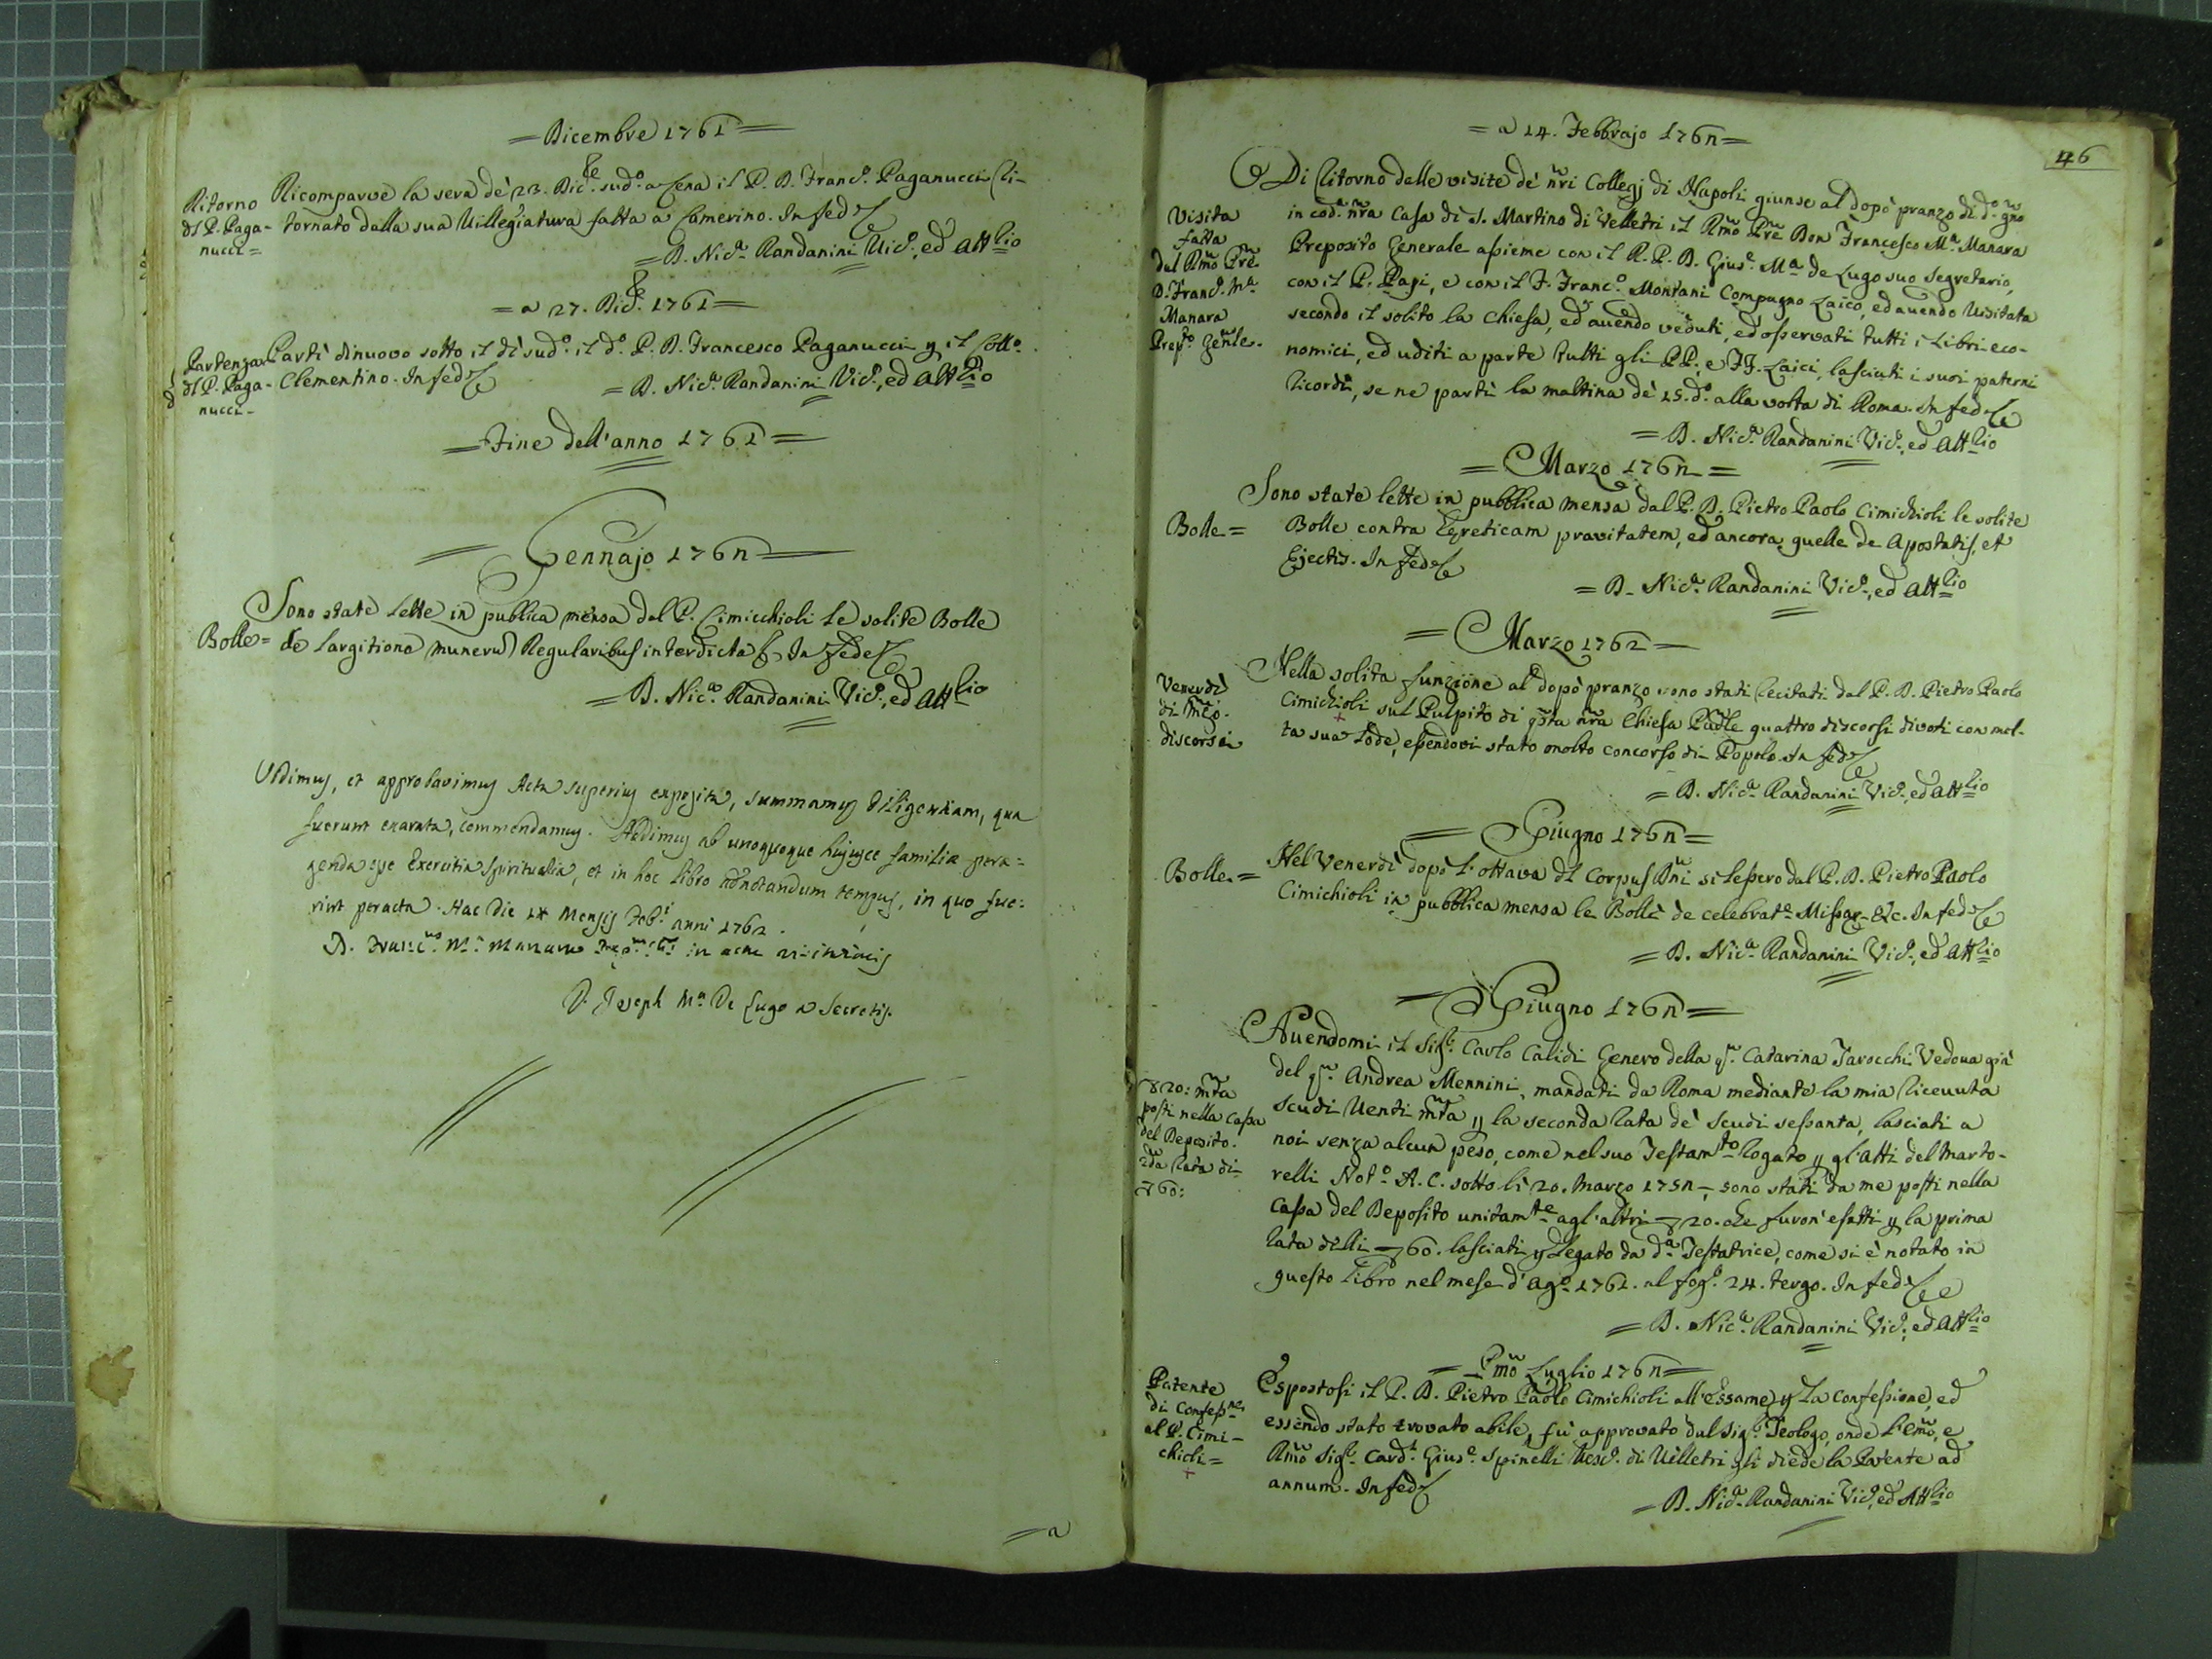 = Dicembre 1761 =
Ritorno
del P. Paga-
nucci =
Ricomparve la sera de' 23. Dic.e sud.o a Cena il P. D. Franc.o Paganucci ri-
tornato dalla sua Villegiatura fatta a Camerino. In fede
= D. Nic.a Randanini Vic.o, ed Att.rio
= a 27. Dic.e 1761 =
Partenza
del P. Paga-
nucci -
Partì dinuovo sotto il dì sud.o il d.o P. D. Francesco Paganucci p il Coll.o
Clementino. In fede
= D. Nic.a Randanini Vic.o, ed Att.rio
= Fine dell'anno 1761 =
= Gennajo 1762 =
Bolle =
Sono state lette in publica mensa dal P. Cimicchioli le solite Bolle
de largitione munerũ Regularibus interdicta &. In fede
= D. Nic.a Randanini Vic.o, ed Att.rio
Vidimus, et approbavimus Acta superius exposita, summamque diligentiam, qua
fuerunt exarata, commendamus. Addimus ab unoquoque hujusce familiæ pera=
genda esse Exercitia Spiritualia, et in hoc libro adnotandum tempus, in quo fue=
rint peracta. Hac Die 14 Mensis Feb.i anni 1762.
D. Franc.us M.a Manara Præp.us G.lis in actu visitationis
D. Joseph M.a De Lugo a Secretis.
= a
46
= a 14. Febbrajo 1762 =
Visita
fatta
dal Rm̃o Prẽ
D. Franc.o M.a
Manara
Prep.to Gẽnle.
Di ritorno delle visite de' nr̃i Collegj di Napoli giunse al dopò pranzo di d.o gn̈o
in cod.a nr̃a Casa di S. Martino di Velletri il Rm̃o Prẽ Don Francesco M.a Manara
Preposito Generale assieme con il R. P. D. Gius.e M.a de Lugo suo Segretario,
con il P. Pagi, e con il F. Franc.o Montani Compagno Laico, ed avendo visitata
secondo il solito la Chiesa, ed avendo veduti, ed osservati tutti i Libri eco-
nomici, ed uditi a parte tutti gli PP., e FF. Laici, lasciati i suoi paterni
ricordi, se ne partì la mattina de' 15. d.o alla volta di Roma. In fede
= D. Nic.a Randanini Vic.o, ed Att.rio
= Marzo 1762 =
Bolle =
Sono state lette in pubblica mensa dal P. D. Pietro Paolo Cimichioli le solite
Bolle contra Hæreticam pravitatem, ed ancora quelle de Apostatis, et
Ejectis. In fede
= D. Nic.a Randanini Vic.o, ed Att.rio
= Marzo 1762 =
Venerdì
di Mẽzo.
discorsi
Nella solita funzione al dopò pranzo sono stati recitati dal P. D. Pietro Paolo
Cimichioli sul Pulpito di qũta nr̃a Chiesa Parr̃le quattro discorsi divoti con mol-
ta sua lode, essendovi stato molto concorso di Popolo. In fede
= D. Nic.a Randanini Vic.o, ed Att.rio
= Giugno 1762 =
Bolle =
Nel Venerdì dopò l'ottava del Corpus Dñi si lessero dal P. D. Pietro Paolo
Cimichioli in pubblica mensa le Bolle de celebrat.e Missar. &c. In fede
= D. Nic.a Randanini Vic.o, ed Att.rio
= Giugno 1762 =
∇ 20: mr̃ta
posti nella Cassa
del Deposito.
2da rata di
∇ 60:
Avendomi il Sig.r Carlo Calidi Genero della qm̃. Catarina Tarocchi Vedova già
del qm̃. Andrea Mennini, mandati da Roma mediante la mia ricevuta
scudi Venti mr̃ta p la seconda rata de' scudi sessanta, lasciati a
noi senza alcun peso, come nel suo Testam.to rogato p gl'Atti del Marto-
relli Not.o A. C. sotto li 20. Marzo 1752, sono stati da me posti nella
Cassa del Deposito unitam.te agl'altri ∇ 20. che furon' esatti p la prima
rata delli ∇ 60. lasciati p Legato da d.a Testatrice, come si è notato in
questo Libro nel mese d'Ag.o 1761. al fog.o 24. tergo. In fede
= D. Nic.a Randanini Vic.o, ed Att.rio
= Pm̃o Luglio 1762 =
Patente
di Confess.ne
al P. Cimi-
chioli =
Espostosi il P. D. Pietro Paolo Cimichioli all'essame p la Confessione, ed
essendo stato trovato abile, fù approvato dal Sig.r Teologo, onde l'Em̃o, e
Rm̃o Sig.r Card.l Gius.e Spinelli Vesc.o di Velletri gli diede la Patente ad
annum. In fede
= D. Nic.a Randanini Vic.o, ed Att.rio